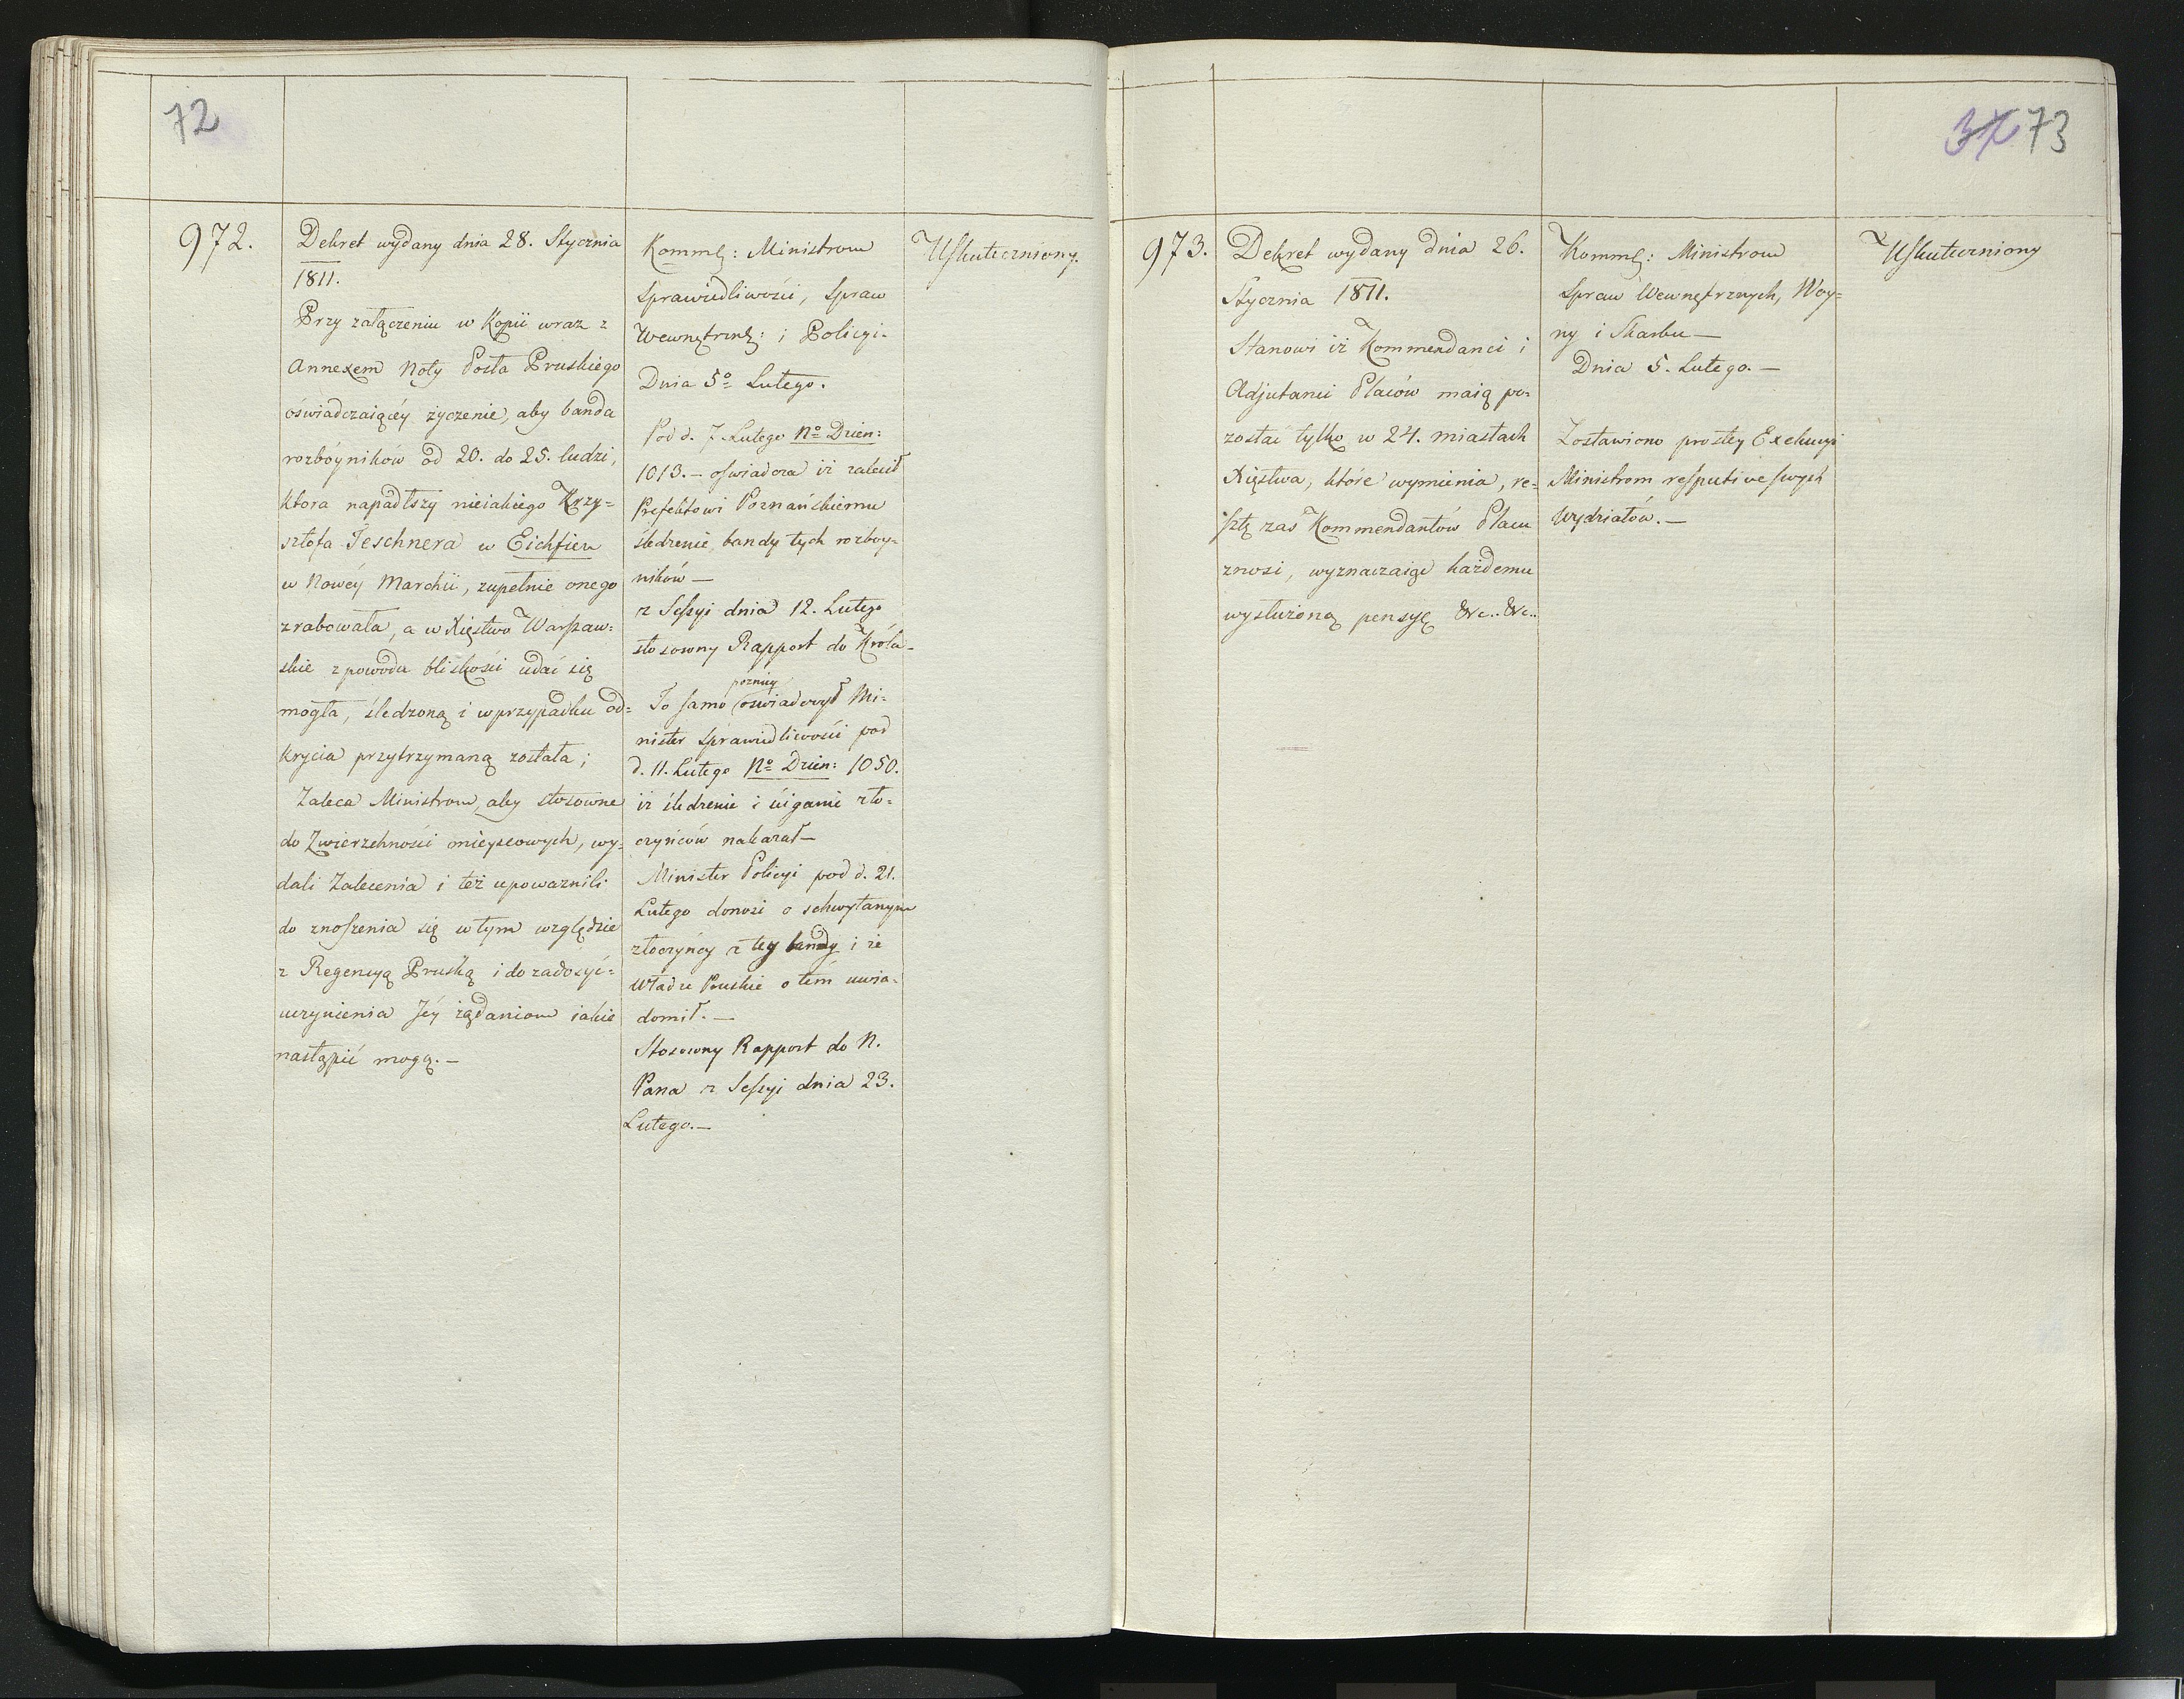 72
972.
Dekret wydany dnia 28. Stycznia
1811.
Przy załączeniu w Kopii wraz z
Annexem Noty Posła Pruskiego
oświadczaiącéy życzenie, aby banda
rozbóyników od 20. do 25. ludzi,
ktora napadłszy nieiakiego Krzy=
sztofa Teschnera w Eichfier
w Nowéy Marchii, zupełnie onego
zrabowała, a w Xięstwo Warszaw=
skie z powodu bliskości udać się
mogła, śledzoną i w przypadku od=
krycia przytrzymaną została;
Zaleca Ministrom, aby stosowne
do Zwierzchności mieyscowych, wy=
dali Zalecenia i też upoważnili
do znoszenia się w tym względzie
z Regencyą Pruską i do zadosyć=
uczynienia Jéy żądaniom iakie
nastąpić mogą. —
Kommk: Ministrom
Sprawiedliwości, Spraw
Wewnętrznk: i Policyi.
Dnia 5º Lutego.
Pod d. 7. Lutego Nº Dzien:
1013. — oświadcza iż zalecił
Prefektowi Poznańskiemu
śledzenie bandy tych rozbóy=
ników —
z Sessyi dnia 12. Lutego
stosowny Rapport do Króla —
pozniey
To samo oświadczył Mi=
nister Sprawiedliwości pod
d. 11. Lutego Nº Dzien: 1050.
iż śledzenie i ściganie zło=
czyńców nakazał —
Minister Policyi pod d. 21.
Lutego donosi o schwytanym
złoczyńcy z tey bandy i że
władze Pruskie o tém uwia=
domił. —
Stosowny Rapport do N.
Pana z Sessyi dnia 23.
Lutego. —
Uskuteczniony.
37 73
973.
Dekret wydany dnia 26.
Stycznia 1811.
Stanowi iż Kommendanci i
Adjutanci Placów maią po=
zostać tylko w 24. miastach
Xięstwa, które wymienia, re=
sztę zas Kommendantów Placu
znosi, wyznaczaiąc każdemu
wysłużoną pensyę &c.. &c..
Kommk: Ministrom
Spraw Wewnętrznych, Woy=
ny i Skarbu —
Dnia 5. Lutego. —
Zostawiono prostey Exekucyi
Ministrom respective swych
Wydziałów. —
Uskuteczniony